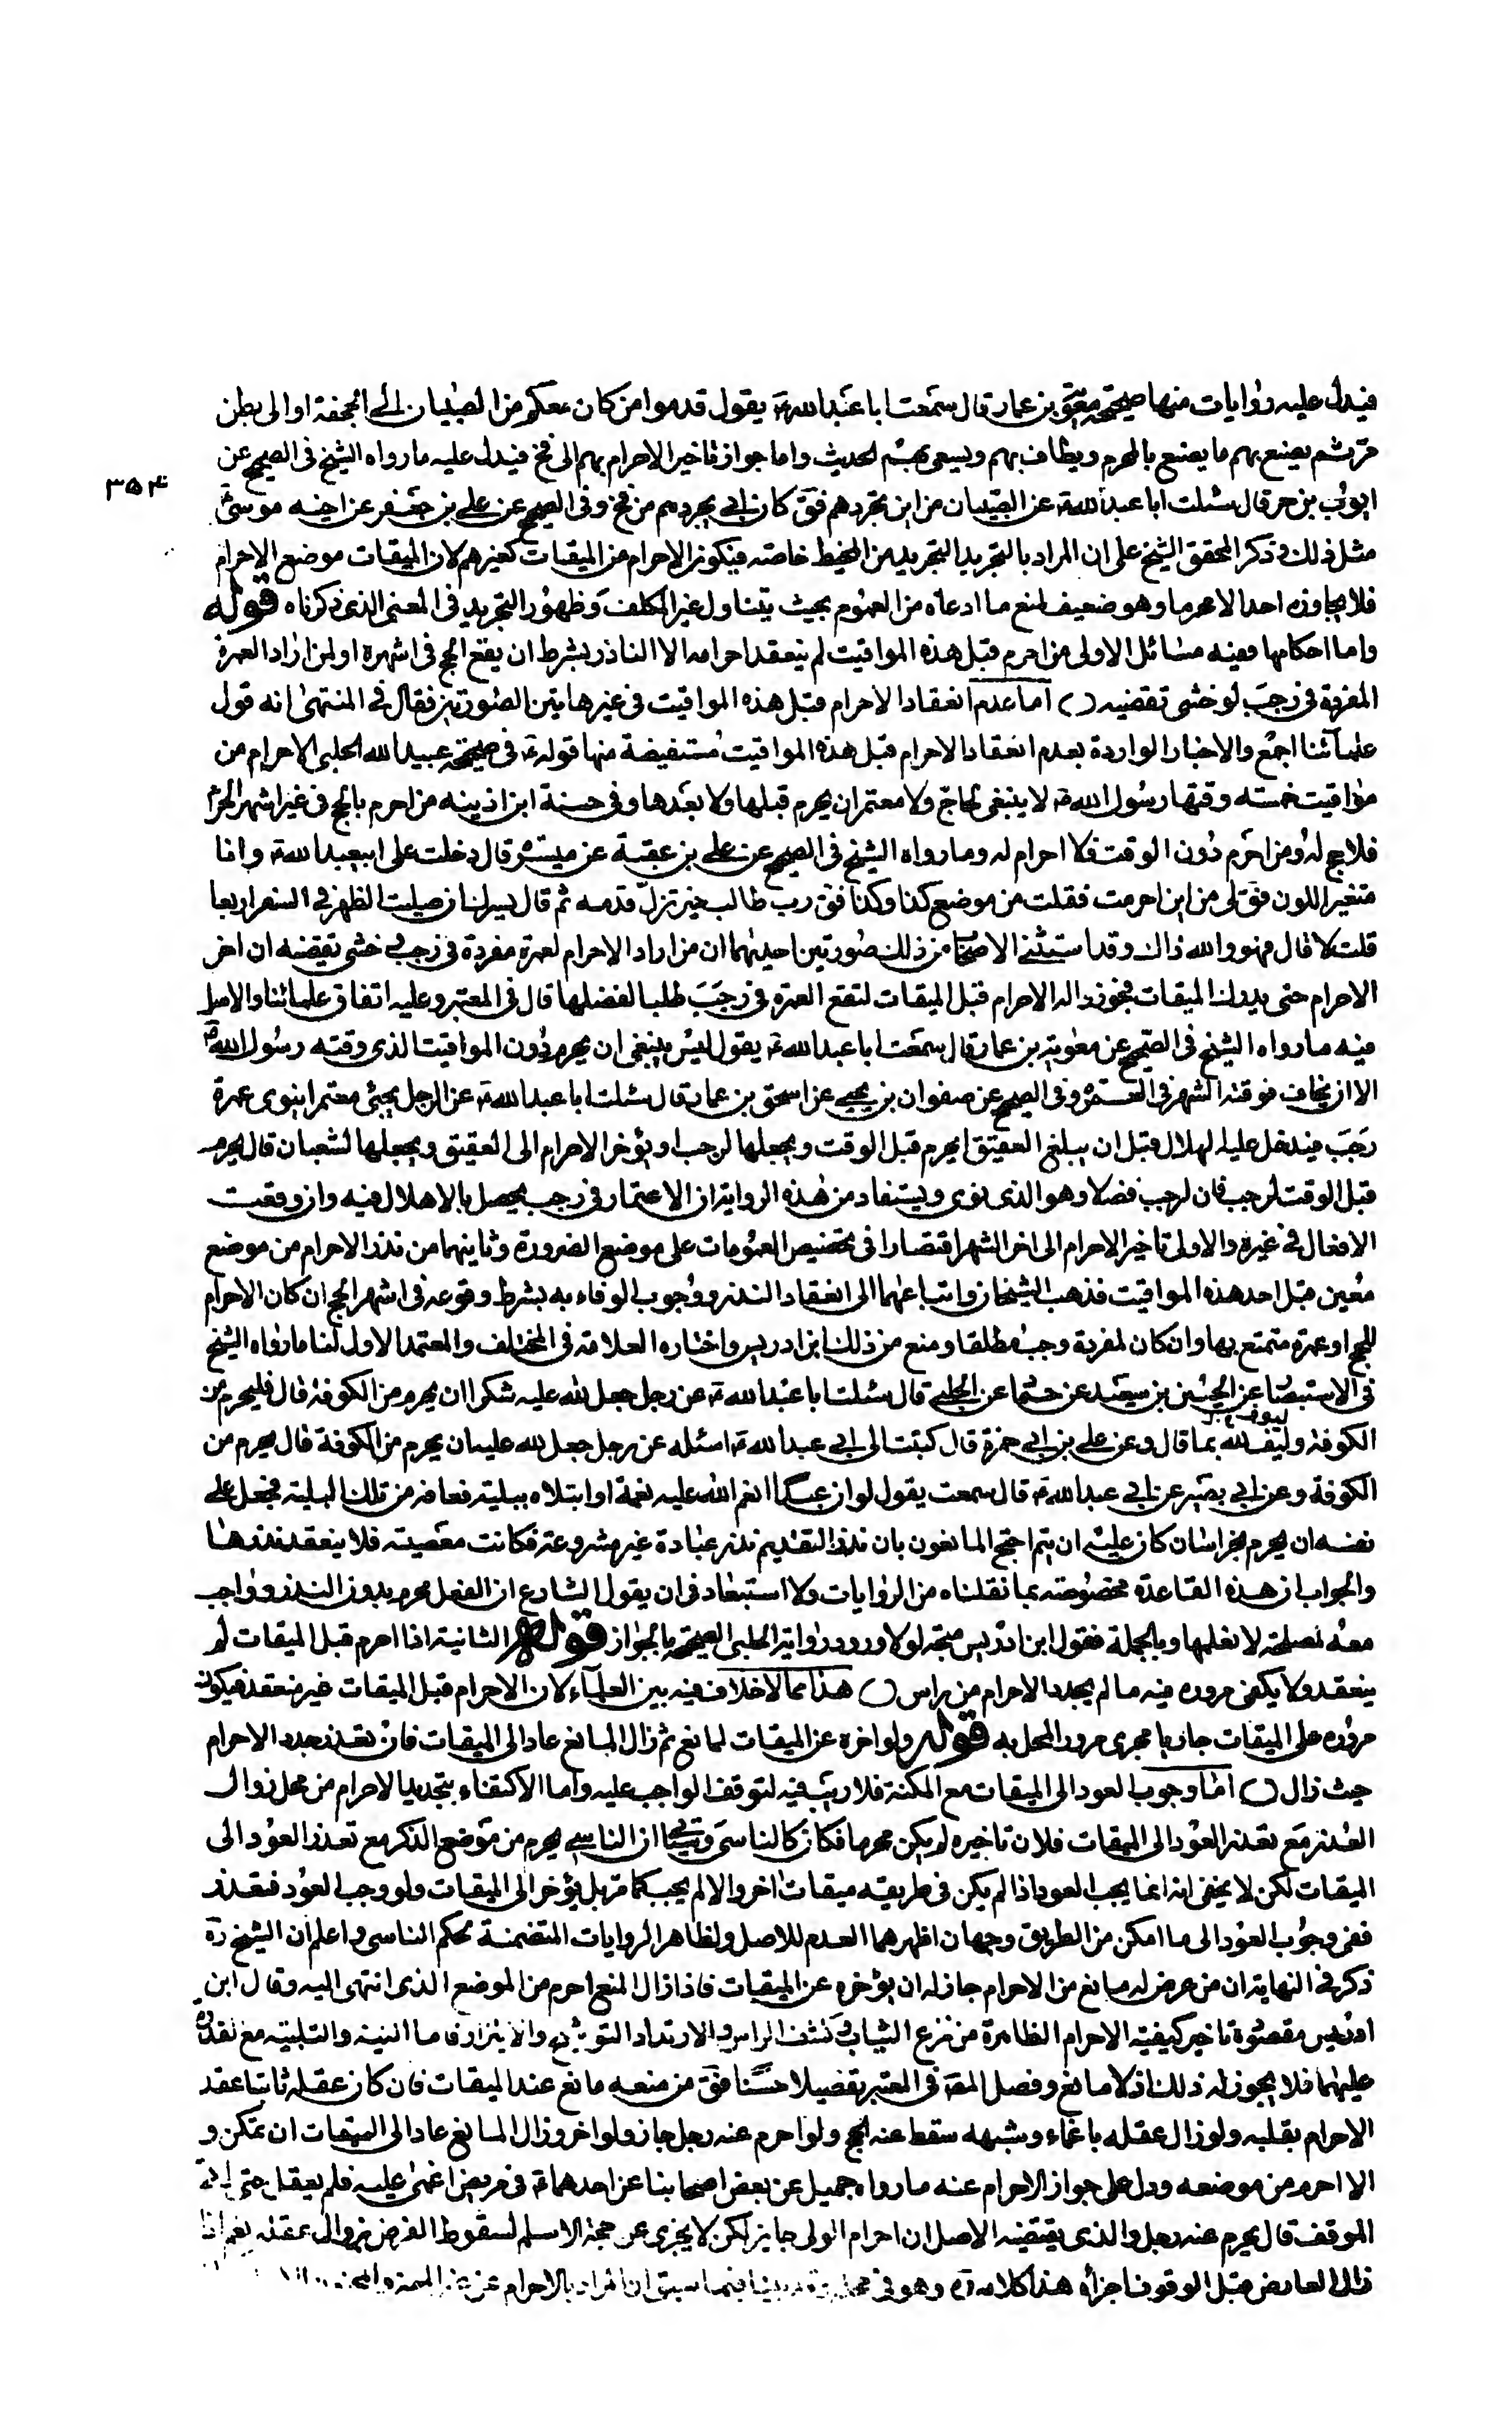 فيدل عليه روايات منها صحيحة معوية بن عمار قال سمعت ابا عبد الله ع يقول قدموا من كان معكم من الصبيان الى الجحفة او الى بطن
مر ثم يصنع بهم ما يصنع بالمحرم ويطاف بهم ويسعى بهم الحديث واما جواز تاخير الاحرام بهم الى فخ فيدل عليه ما رواه الشيخ فى الصحيح عن
۳۵۴
ايوب بن حر قال سئلت ابا عبد الله ع عن الصبيان من اين نجردهم فق كان ابى يجردهم من فخ وفى الصحيح عن على بن جعفر عن اخيه موسى ع
مثل ذلك وذكر المحقق الشيخ على ان المراد بالتجريد التجريد من المخيط خاصة فيكون الاحرام من الميقات كغيرهم لان الميقات موضع الاحرام
فلا يجاوزه احد الا محرما وهو ضعيف لمنع ما ادعاه من العموم بحيث يتناول غير المكلف وظهور التجريد فى المعنى الذى ذكرناه قوله
واما احكامها ففيه مسائل الاولى من احرم قبل هذه المواقيت لم ينعقد احرامه الا الناذر بشرط ان يقع الحج فى اشهره او لمن اراد العمرة
المفردة فى رجب لو خشى تقضيه () اما عدم انعقاد الاحرام قبل هذه المواقيت فى غير هاتين الصورتين فقال فى المنتهى انه قول
علمآئنا اجمع والاخبار الواردة بعدم انعقاد الاحرام قبل هذه المواقيت مستفيضة منها قوله ع فى صحيحة عبيد الله الحلبى الاحرام من
مواقيت خمسة وقتها رسول الله ص لا ينبغى لحاج ولا معتمر ان يحرم قبلها ولا بعدها وفى حسنة ابن اذينه من احرم بالحج فى غير اشهر الحج
فلا حج له ومن احرم دون الوقت فلا احرام له وما رواه الشيخ فى الصحيح عن على بن عقبة عن ميسرة قال دخلت على ابيعبد الله ع وانا
متغير اللون فق لى من اين احرمت فقلت من موضع كذا وكذا فق رب طالب خير تزل قدمه ثم قال يسرك ان صليت الظهر فى السفر اربعا
قلت لا قال فهو والله ذاك وقد استثنى الاصحاب من ذلك صورتين احديهما ان من اراد الاحرام لعمرة مفردة فى رجب خشى تقضيه ان اخر
الاحرام حتى يدرك الميقات فيجوز له الاحرام قبل الميقات لتقع العمرة فى رجب طلبا لفضلها قال فى المعتبر وعليه اتفاق علمائنا والاصل
فيه ما رواه الشيخ فى الصحيح عن معوية بن عمار قال سمعت ابا عبد الله ع يقول ليس ينبغى ان يحرم دون المواقيت الذى وقته رسول الله ص
الا ان يخاف فوت الشهر فى العمرة وفى الصحيح عن صفوان بن يحيى عن اسحق بن عمار قال سئلت ابا عبد الله ع عن الرجل يجئ معتمرا ينوى عمرة
رجب فيدخل عليه الهلال قبل ان يبلغ العقيق ايحرم قبل الوقت ويجعلها لرجب او يؤخر الاحرام الى العقيق ويجعلها لشعبان قال يحرم
قبل الوقت لرجب فان لرجب فضلا وهو الذى نوى ويستفاد من هذه الرواية ان الاعتمار فى رجب يحصل بالاهلال فيه وان وقعت
الافعال فى غيره والاولى تاخير الاحرام الى اخر الشهر اقتصارا فى تخصيص العمومات على موضع الضرورة وثانيهما من نذر الاحرام من موضع
معين قبل احد هذه المواقيت فذهب الشيخان واتباعهما الى انعقاد النذر ووجوب الوفاء به بشرط وقوعه فى اشهر الحج ان كان الاحرام
للحج او عمرة متمتع بها وان كان لمفردة وجب مطلقا ومنع من ذلك ابن ادريس واختاره العلامة فى المختلف والمعتمد الاول لنا ما رواه الشيخ
فى الاستبصار عن الحسين بن سعيد عن حماد عن الحلبى قال سئلت ابا عبد الله ع عن رجل جعل لله عليه شكرا ان يحرم من الكوفة قال فليحرم من
الكوفة وليف لله بما قال وعن على بن ابى حمزة قال كتبت الى ابى عبد الله ع اسئله عن رجل جعل لله عليه ان يحرم من الكوفة قال يحرم من
الكوفة وعن ابى بصير عن ابى عبد الله ع قال سمعت يقول لو ان عبدا انعم الله عليه نعمة او ابتلاه ببلية فعافه من تلك البلية فجعل على
نفسه ان يحرم بخراسان كان عليه ان يتم احتج المانعون بان نذر التقديم نذر عبادة غير مشروعة فكانت معصية فلا ينعقد نذرها
والجواب ان هذه القاعدة مخصوصة بما نقلناه من الروايات ولا استبعاد فى ان يقول الشارع ان الفعل محرم بدون النذر وواجب
معه لمصلحة لا نعلمها وبالجملة فقول ابن ادريس متجه لولا ورود رواية الحلبى الصحيحة بالجواز قوله الثانية اذا احرم قبل الميقات لم
ينعقد ولا يكفى مروره فيه ما لم يجدد الاحرام من راس () هذا مما لا خلاف فيه بين العلمآء لان الاحرام قبل الميقات غير منعقد فيكون
مروره على الميقات جاريا مجرى مرور المحل به قوله ولو اخره عن الميقات لمانع ثم زال المانع عاد الى الميقات فان تعذر جدد الاحرام
حيث زال () اما وجوب العود الى الميقات مع المكنة فلا ريب فيه لتوقف الواجب عليه واما الاكتفاء بتجديد الاحرام من محل زوال
العذر مع تعذر العود الى الميقات فلان تاخيره لم يكن محرما فكان كالناسى وسيجئ ان الناسى يحرم من موضع الذكر مع تعذر العود الى
الميقات لكن لا يخفى انه انما يجب العود اذا لم يكن فى طريقه ميقات اخر والا لم يجب كما مر بل يؤخر الى الميقات ولو وجب العود فتعذر
ففى وجوب العود الى ما امكن من الطريق وجهان اظهرهما العدم للاصل ولظاهر الروايات المتضمنة لحكم الناسى واعلم ان الشيخ ره
ذكر فى النهاية ان من عرض له مانع من الاحرام جاز له ان يؤخره عن الميقات فاذا زال المنع احرم من الموضع الذى انتهى اليه وقال ابن
ادريس مقصوده تاخير كيفية الاحرام الظاهرة من نزع الثياب وكشف الراس والارتداء التوشح والايتزار فاما النية والتلبية مع القدرة
عليهما فلا يجوز له ذلك اذ لا مانع وفصل المصنف فى المعتبر تفصيلا حسنا فق من منعه مانع عند الميقات فان كان عقله ثابتا عقد
الاحرام بقلبه ولو زال عقله باغماء وشبهه سقط عنه الحج ولو احرم عنه رجل جاز ولو اخر وزال المانع عاد الى الميقات ان تمكن و
الا احرم من موضعه ودل على جواز الاحرام عنه ما رواه جميل عن بعض اصحابنا عن احدهما ع فى مريض اغمى عليه فلم يعقل حتى اتى
الموقف قال يحرم عنه رجل والذى يقتضيه الاصل ان احرام الولى جايز لكن لا يجزى عن حجة الاسلام لسقوط الفرض بزوال عقله نعم اذا
زال العارض قبل الوقوف اجزأه هذا كلامه ره وهو فى فيما سبق ان المراد بالاحرام عن غير المميز